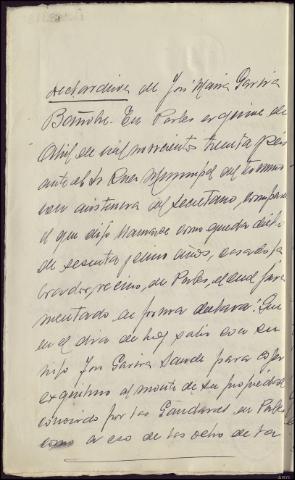 Declaracion de José Maria Garcia
En Portos a quince de
Abril de mil novecientos treinta y seis
ante el Sr Juez Municipal del termino
con asistencia del Secretario, comparece
el que dijo llamarse como queda dicho
de sesenta y cinco años, casado, la-
brador, vecino de Portos, el cual jura-
mentado en forma declara: Que
en el dia de hoy salio con su
hijo José Garcia Sande para coger
esquilmo al monte de su propiedad
conocido por las Gandaras en Portos
a eso de las ocho de la